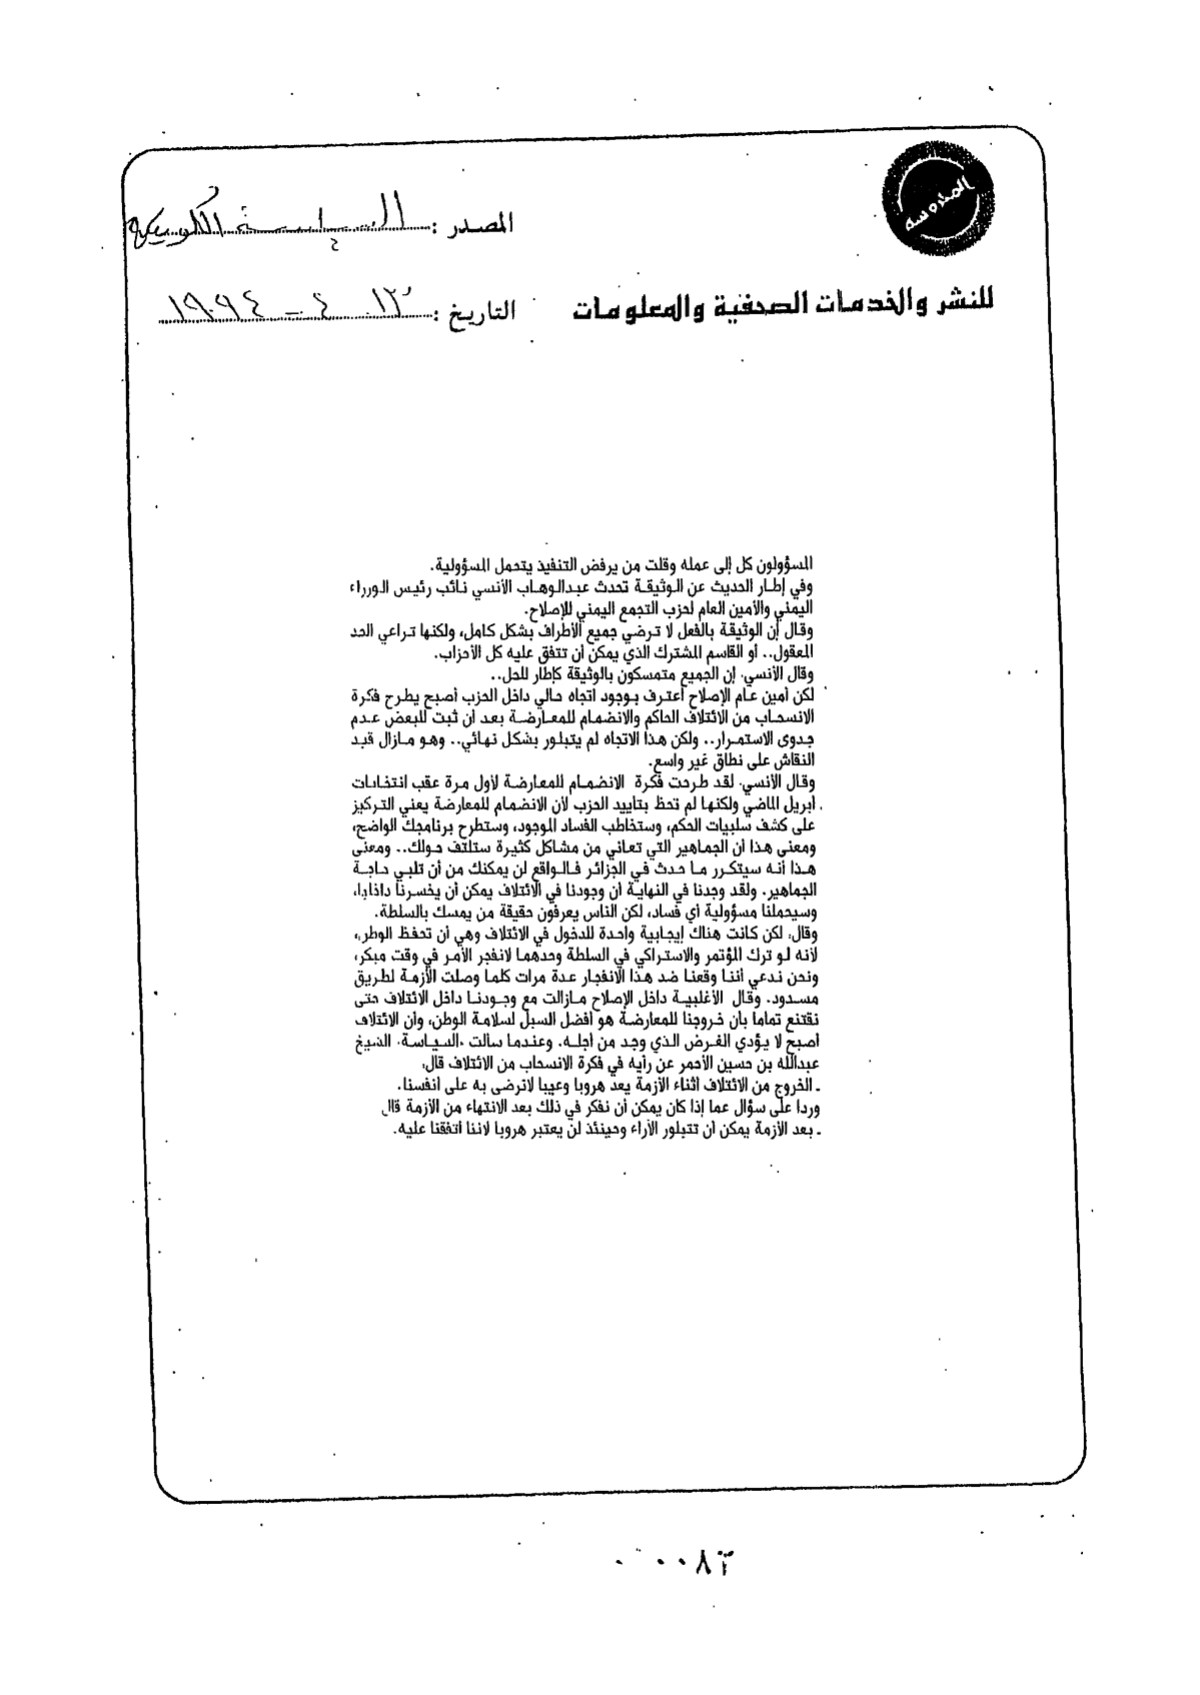 المصدر : السياسة الكويتية
للنشر والخدمات الصحفية والمعلومات
التاريخ : ١٣ ٤ - ١٩٩٤
المسؤولون كل إلى عمله وقلت من يرفض التنفيذ يتحمل المسؤولية.
وفي إطار الحديث عن الوثيقة تحدث عبدالوهاب الأنسي نائب رئيس الوزراء
اليمني والأمين العام لحزب التجمع اليمني للإصلاح.
وقال إن الوثيقة بالفعل لا ترضي جميع الأطراف بشكل كامل، ولكنها تراعي الحد
المعقول.. او القاسم المشترك الذي يمكن أن تتفق عليه كل الأحزاب.
وقال الأنسي. إن الجميع متمسكون بالوثيقة كإطار للحل..
لكن أمين عام الإصلاح اعترف بوجود اتجاه حالي داخل الحزب أصبح يطرح فكرة
الانسحاب من الائتلاف الحاكم والانضمام للمعارضة بعد أن ثبت للبعض عدم
جدوى الاستمرار.. ولكن هذا الاتجاه لم يتبلور بشكل نهائي.. وهو مازال قيد
النقاش على نطاق غير واسع.
وقال الأنسي. لقد طرحت فكرة الانضمام للمعارضة لأول مرة عقب انتخابات
ابريل الماضي ولكنها لم تحظ بتاييد الحزب لأن الانضمام للمعارضة يعني التركيز
على كشف سلبيات الحكم، وستخاطب الفساد الموجود، وستطرح برنامجك الواضح،
ومعنى هذا أن الجماهير التي تعاني من مشاكل كثيرة ستلتف حولك.. ومعنى
هذا أنه سيتكرر ما حدث في الجزائر فالواقع لن يمكنك من أن تلبي حاجة
الجماهير. ولقد وجدنا في النهاية أن وجودنا في الائتلاف يمكن أن يخسرنا داخليا،
وسيحملنا مسؤولية أي فساد، لكن الناس يعرفون حقيقة من يمسك بالسلطة.
وقال، لكن كانت هناك إيجابية واحدة للدخول في الائتلاف وهي أن تحفظ الوطن،
لأنه لو ترك المؤتمر والاشتراكي في السلطة وحدهما لانفجر الأمر في وقت مبكر،
ونحن ندعي أننا وقفنا ضد هذا الانفجار عدة مرات كلما وصلت الأزمة لطريق
مسدود. وقال الأغلبية داخل الإصلاح مازالت مع وجودنا داخل الائتلاف حتى
نقتنع تماما بأن خروجنا للمعارضة هو افضل السبل لسلامة الوطن، وأن الائتلاف
اصبح لا يؤدي الغرض الذي وجد من أجله. وعندما سألت «السياسة» الشيخ
عبدالله بن حسين الأحمر عن رأيه في فكرة الانسحاب من الائتلاف قال،
ـ الخروج من الائتلاف اثناء الأزمة يعد هروبا وعيبا لانرضى به على انفسنا.
وردا على سؤال عما إذا كان يمكن أن نفكر في ذلك بعد الانتهاء من الأزمة قال
ـ بعد الأزمة يمكن أن تتبلور الآراء وحينئذ لن يعتبر هروبا لاننا اتفقنا عليه.